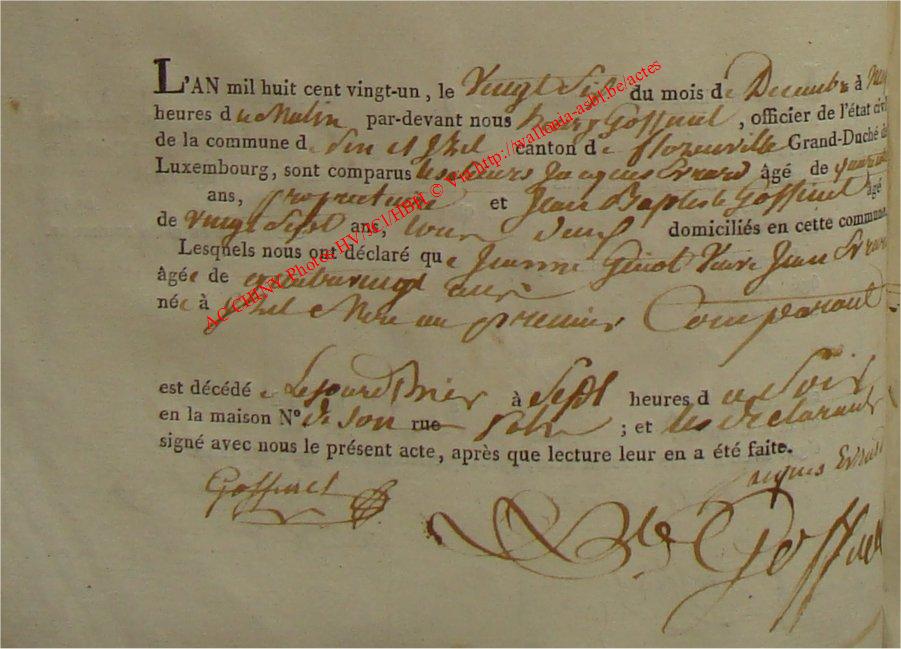 L'AN mil huit cent vingt-un, le Vingt Six du mois de Decembre à
heures du Matin par-devant nous Goffinet, officier de l'état civil
de la commune d canton de florenville Grand-Duché de
Luxembourg, sont comparus les sieurs Jacques Evrard âgé de
ans, proprietaire et Jean Baptiste Goffinet âgé
de vingt Sept ans, domiciliés en cette commune
Lesquels nous ont déclaré que Jeanne Ginot Veuve Jean Evrard
âgée de ans
née à Izel Mere au premier Comparant
est décédée Le jour d'hier à Sept heures du Soir
en la maison N° de son rue ; et les declarants
signé avec nous le présent acte, après que lecture leur en a été faite.
Jacques Evrard
Goffinet
JBte Goffinet
ACCHINY Photos HV/JCl/HBH © Via http://wallonia-asbl.be/actes